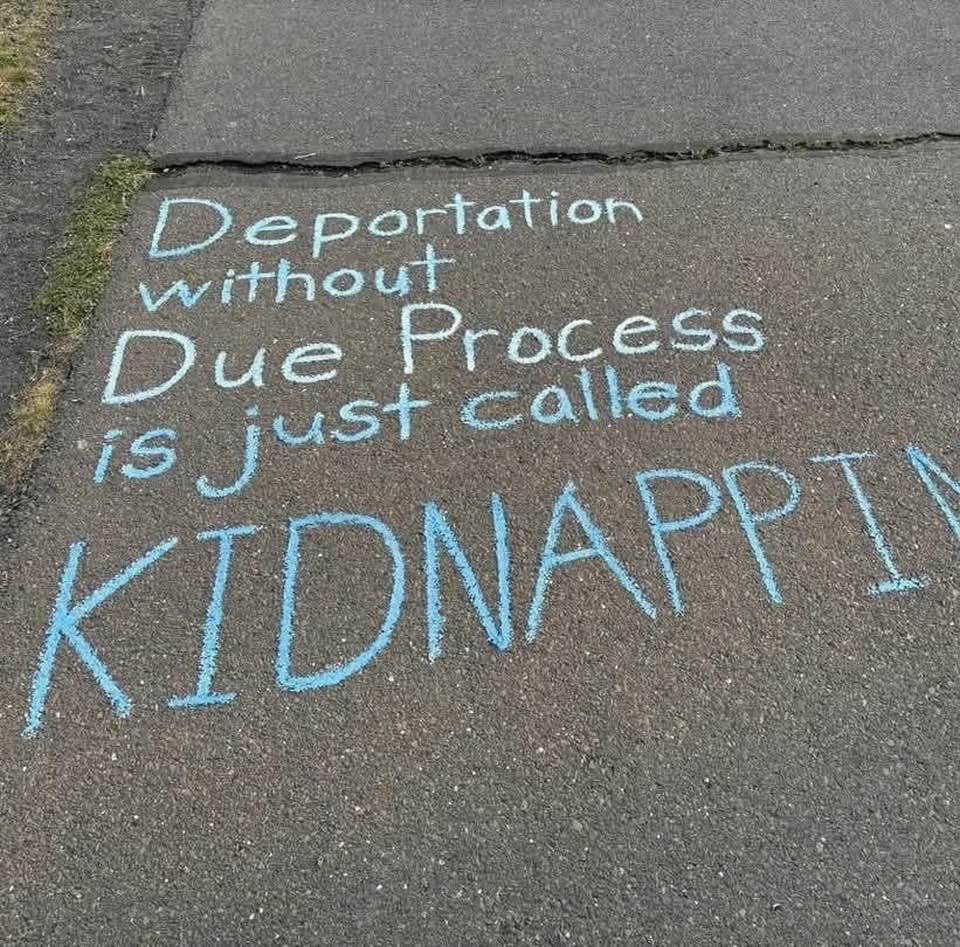 Deportation
without
Due Process
is just called
KIDNAPPIN